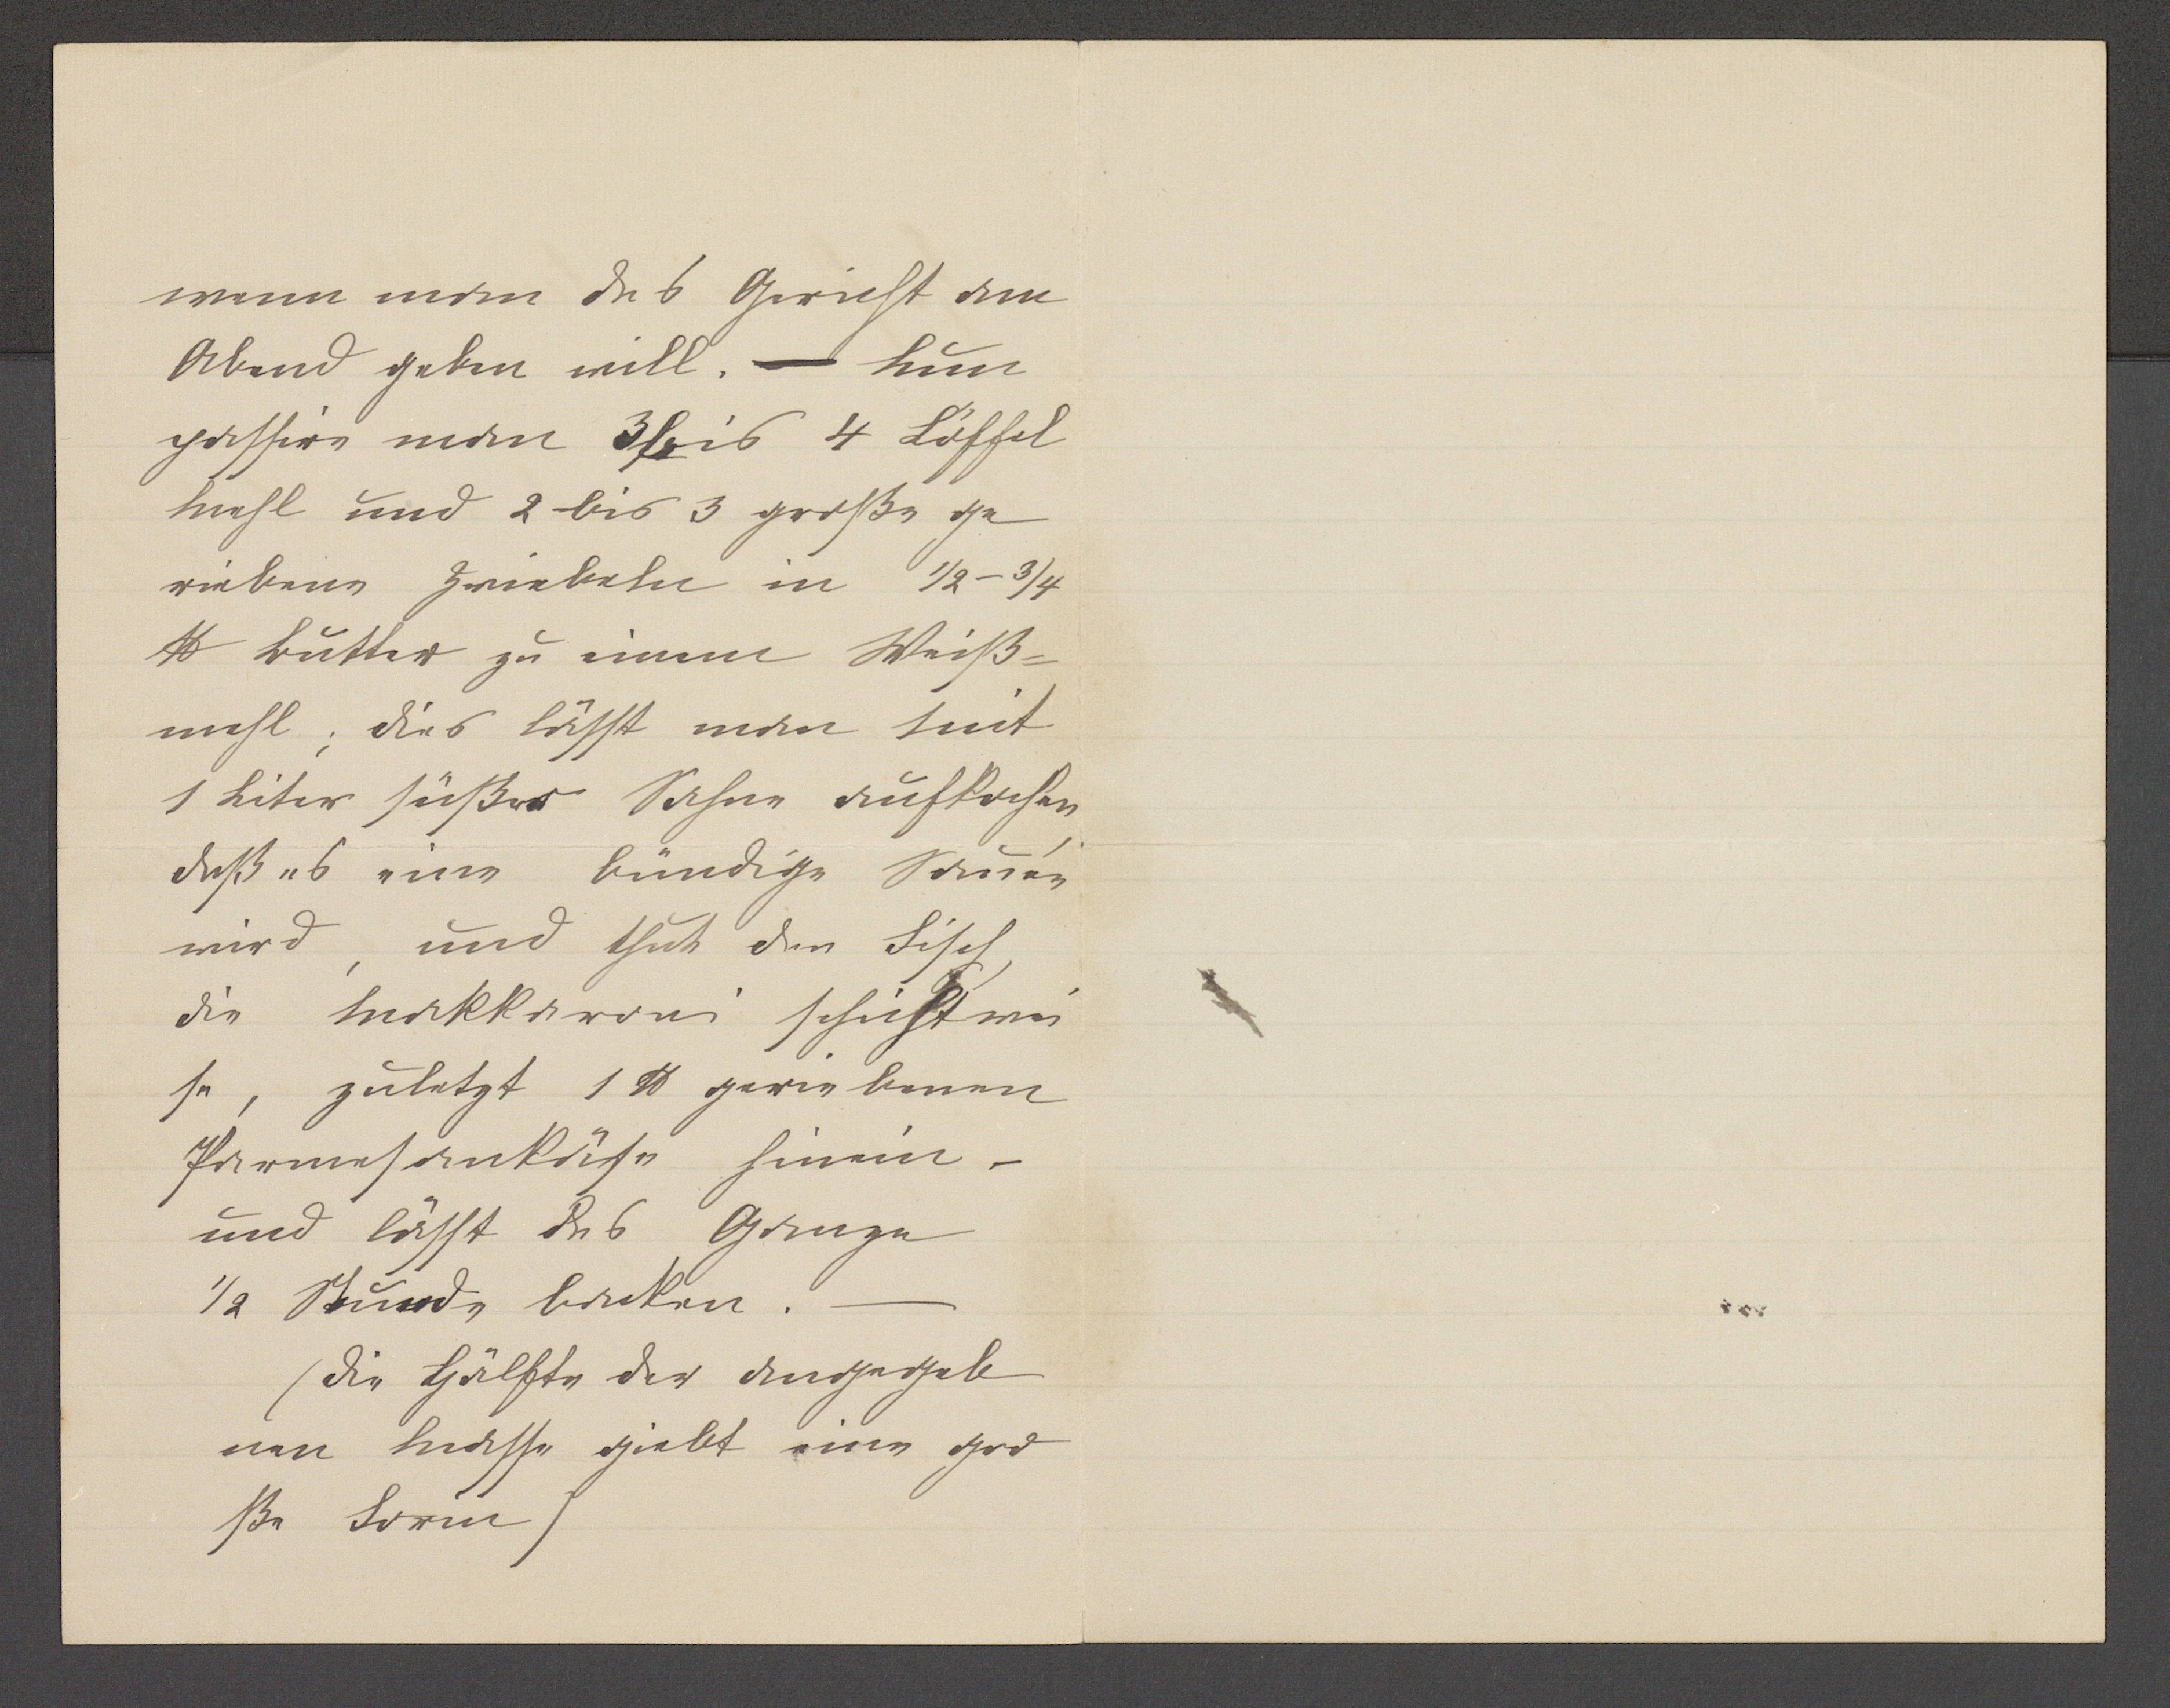 wenn man das Gericht am
Abend geben will. — Nun
passire man 3 bis 4 Löffel
Mehl und 2 bis 3 große ge
riebene Zwiebeln in 1/2 - 3/4
℔ Butter zu einem Weiß=
mehl; dies lässt man mit
1 Liter süßer Sahne aufkochen,
daß es eine bündige Sauce
wird, und thut den Fisch,
die Makkaroni schichtwei
se, zuletzt 1 ℔ geriebenen
Parmesankäse hinein -
und lässt das Ganze
1/2 Stunde backen. —
(die Hälfte der angegeb
nen Masse giebt eine gro
ße Form)